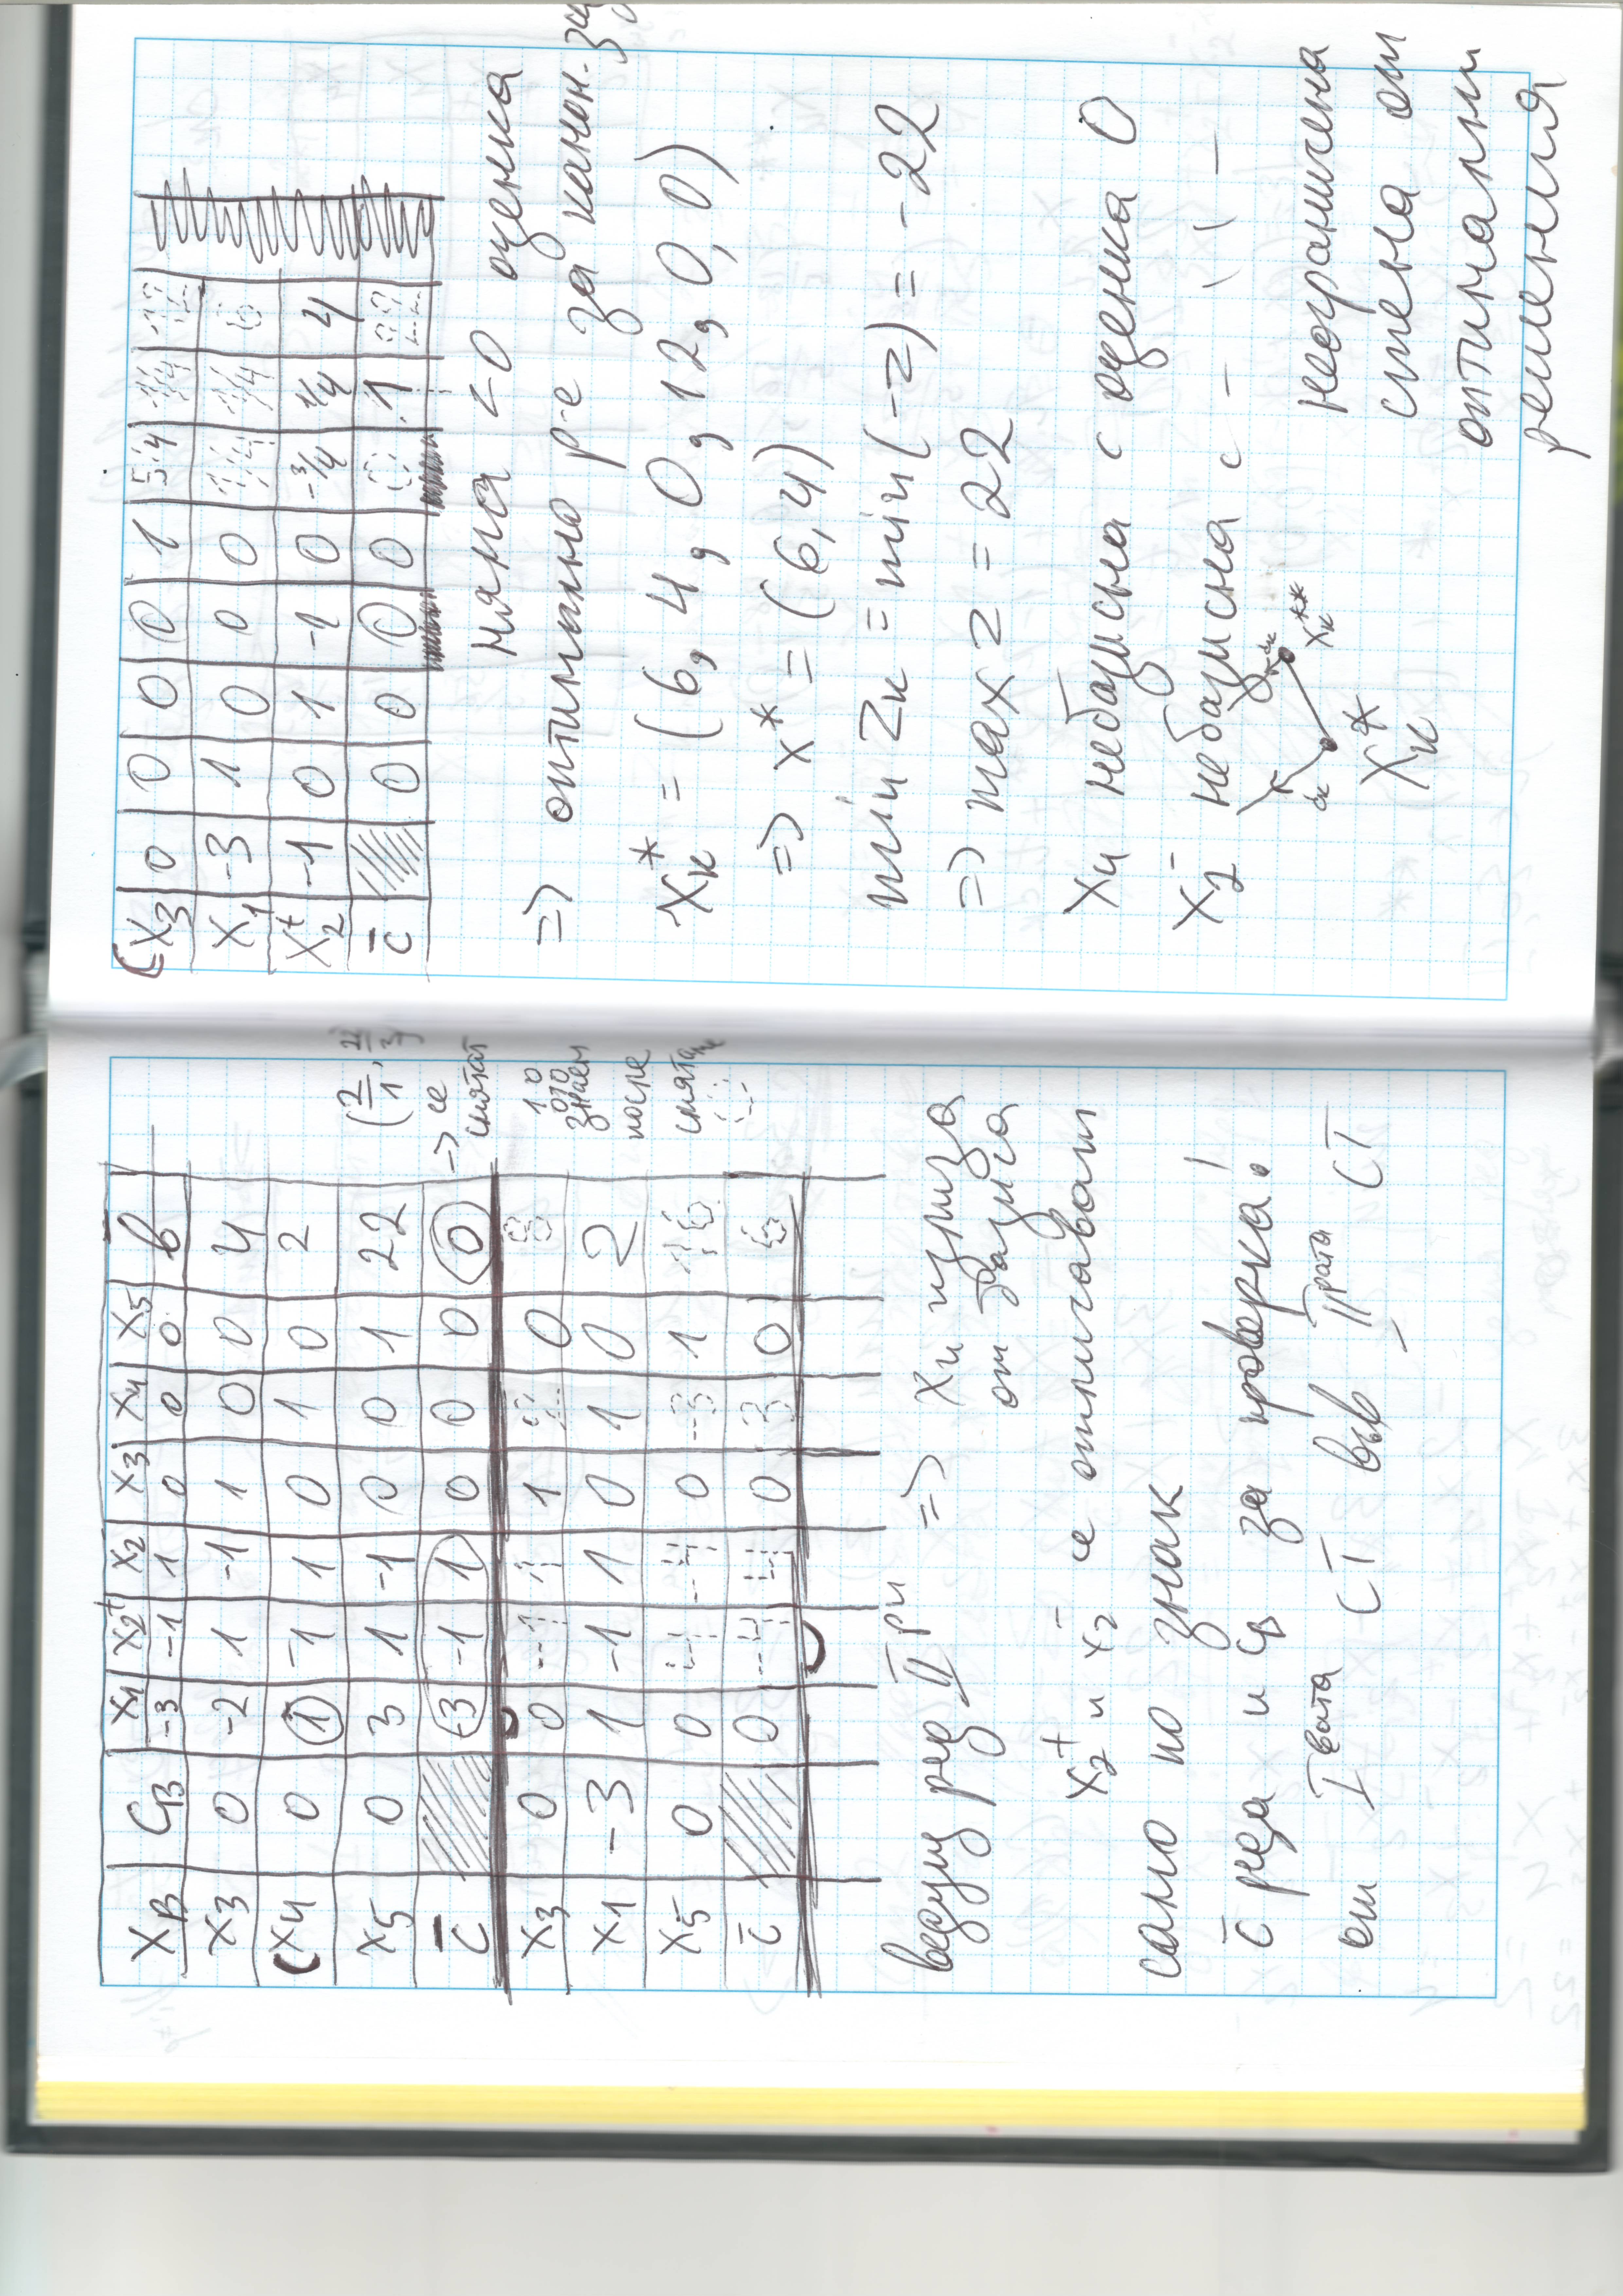 XB CB x1 x2+ x2- x3 x4 x5 b
-3 -1 1 0 0 0
x3 0 -2 1 -1 1 0 0 4
x4 0 1 -1 1 0 1 0 2
x5 0 3 1 -1 0 0 1 22
c̄ -3 -1 1 0 0 0 0
x3 0 0 -1 1 1 2 0 8
x1 -3 1 -1 1 0 1 0 2
x5 0 0 4 -4 0 -3 1 16
c̄ 0 -4 4 0 3 0 6
(2/1, 22/3)
-> се
смятат
1 0
0 1 0
знаем
после
смятаме
=> x4 излиза
от базиса
x2+ и x2- се отличават
само по знак
c̄ реда и CB за проверка!
x3 0 0 0 0 1 5/4 1/4 12
x1 -3 1 0 0 0 1/4 1/4 6
x2+ -1 0 1 -1 0 -3/4 1/4 4
c̄ 0 0 0 0 0 1 22
няма <0 оценка
=> оптимално р-е за канон.
xк* = (6, 4, 0, 12, 0, 0)
=> x* = (6,4)
min zк = min(-z) = -22
=> max z = 22
x4 небазисна с оценка 0
x2- небазисна с - " -
xк*
xк**
неограничена
стена от
оптимални
решения